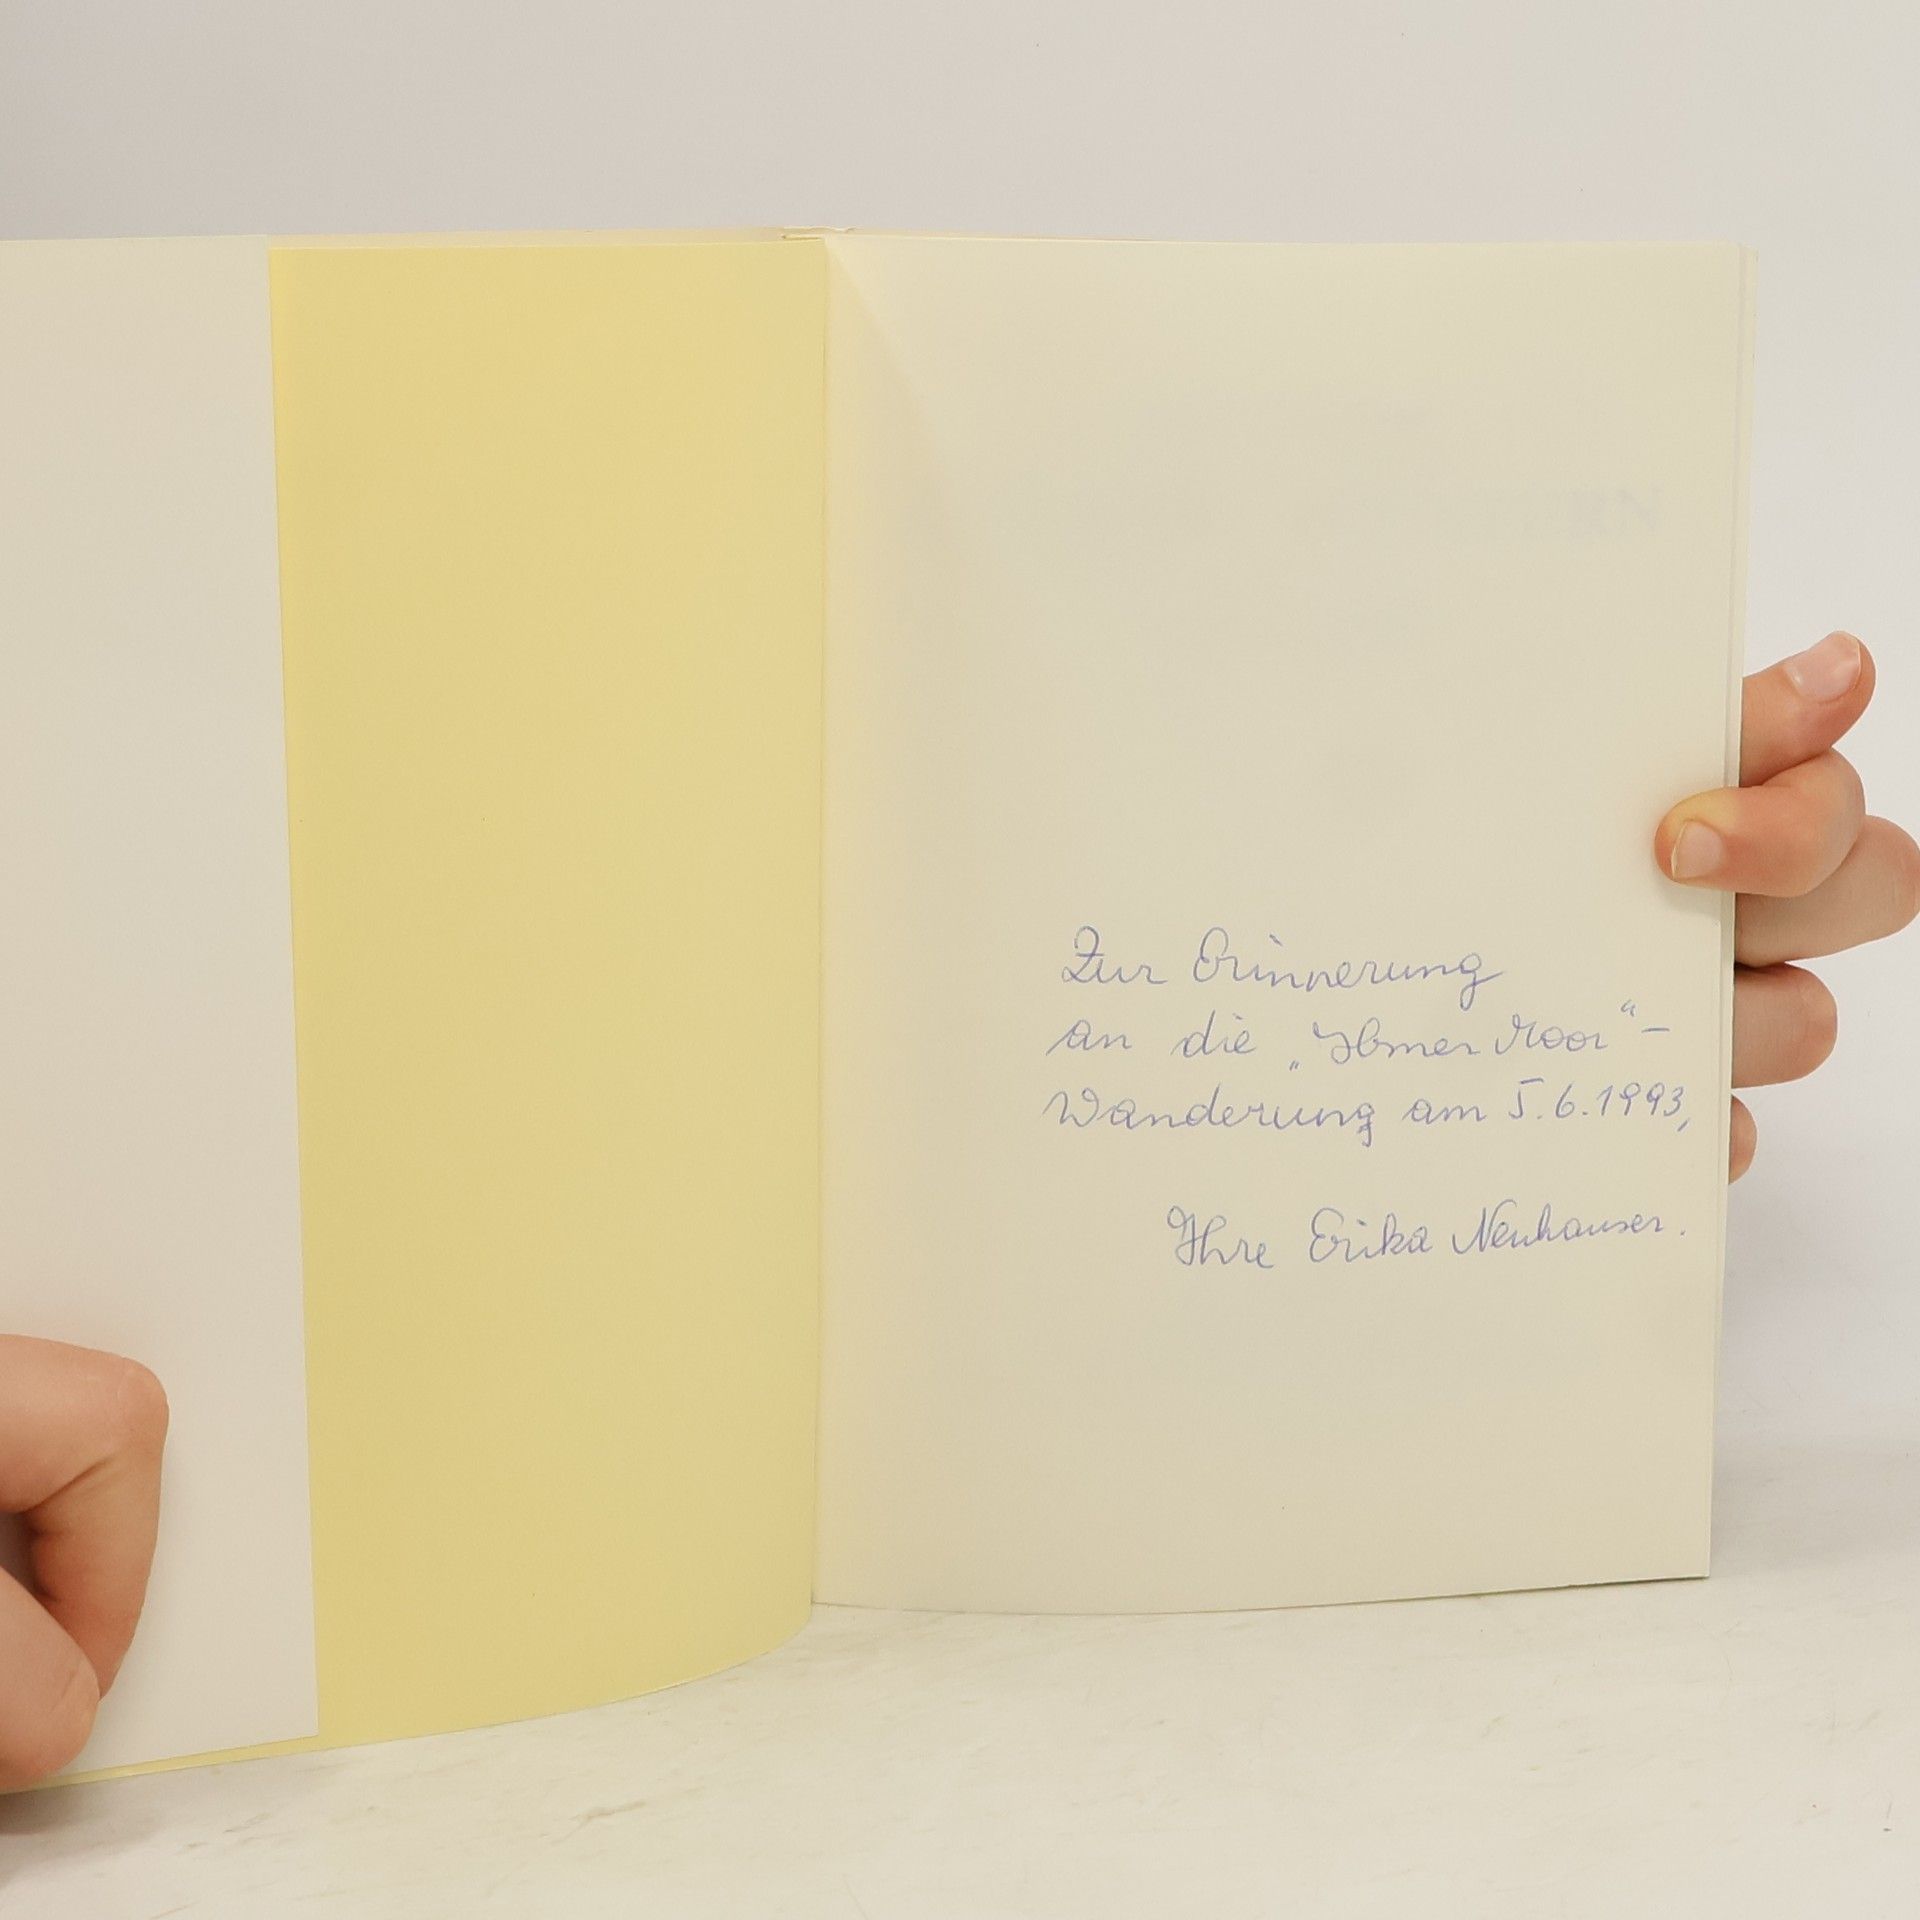 Zur Erinnerung
an die „Ibmer Moor“-
Wanderung am 5.6.1993,
Ihre Erika Neuhauser.